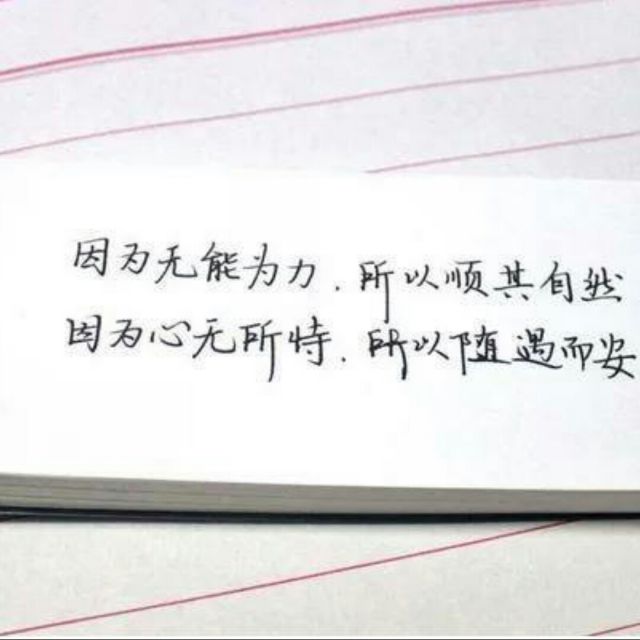 因为无能为力.所以顺其自然
因为心无所恃.所以随遇而安